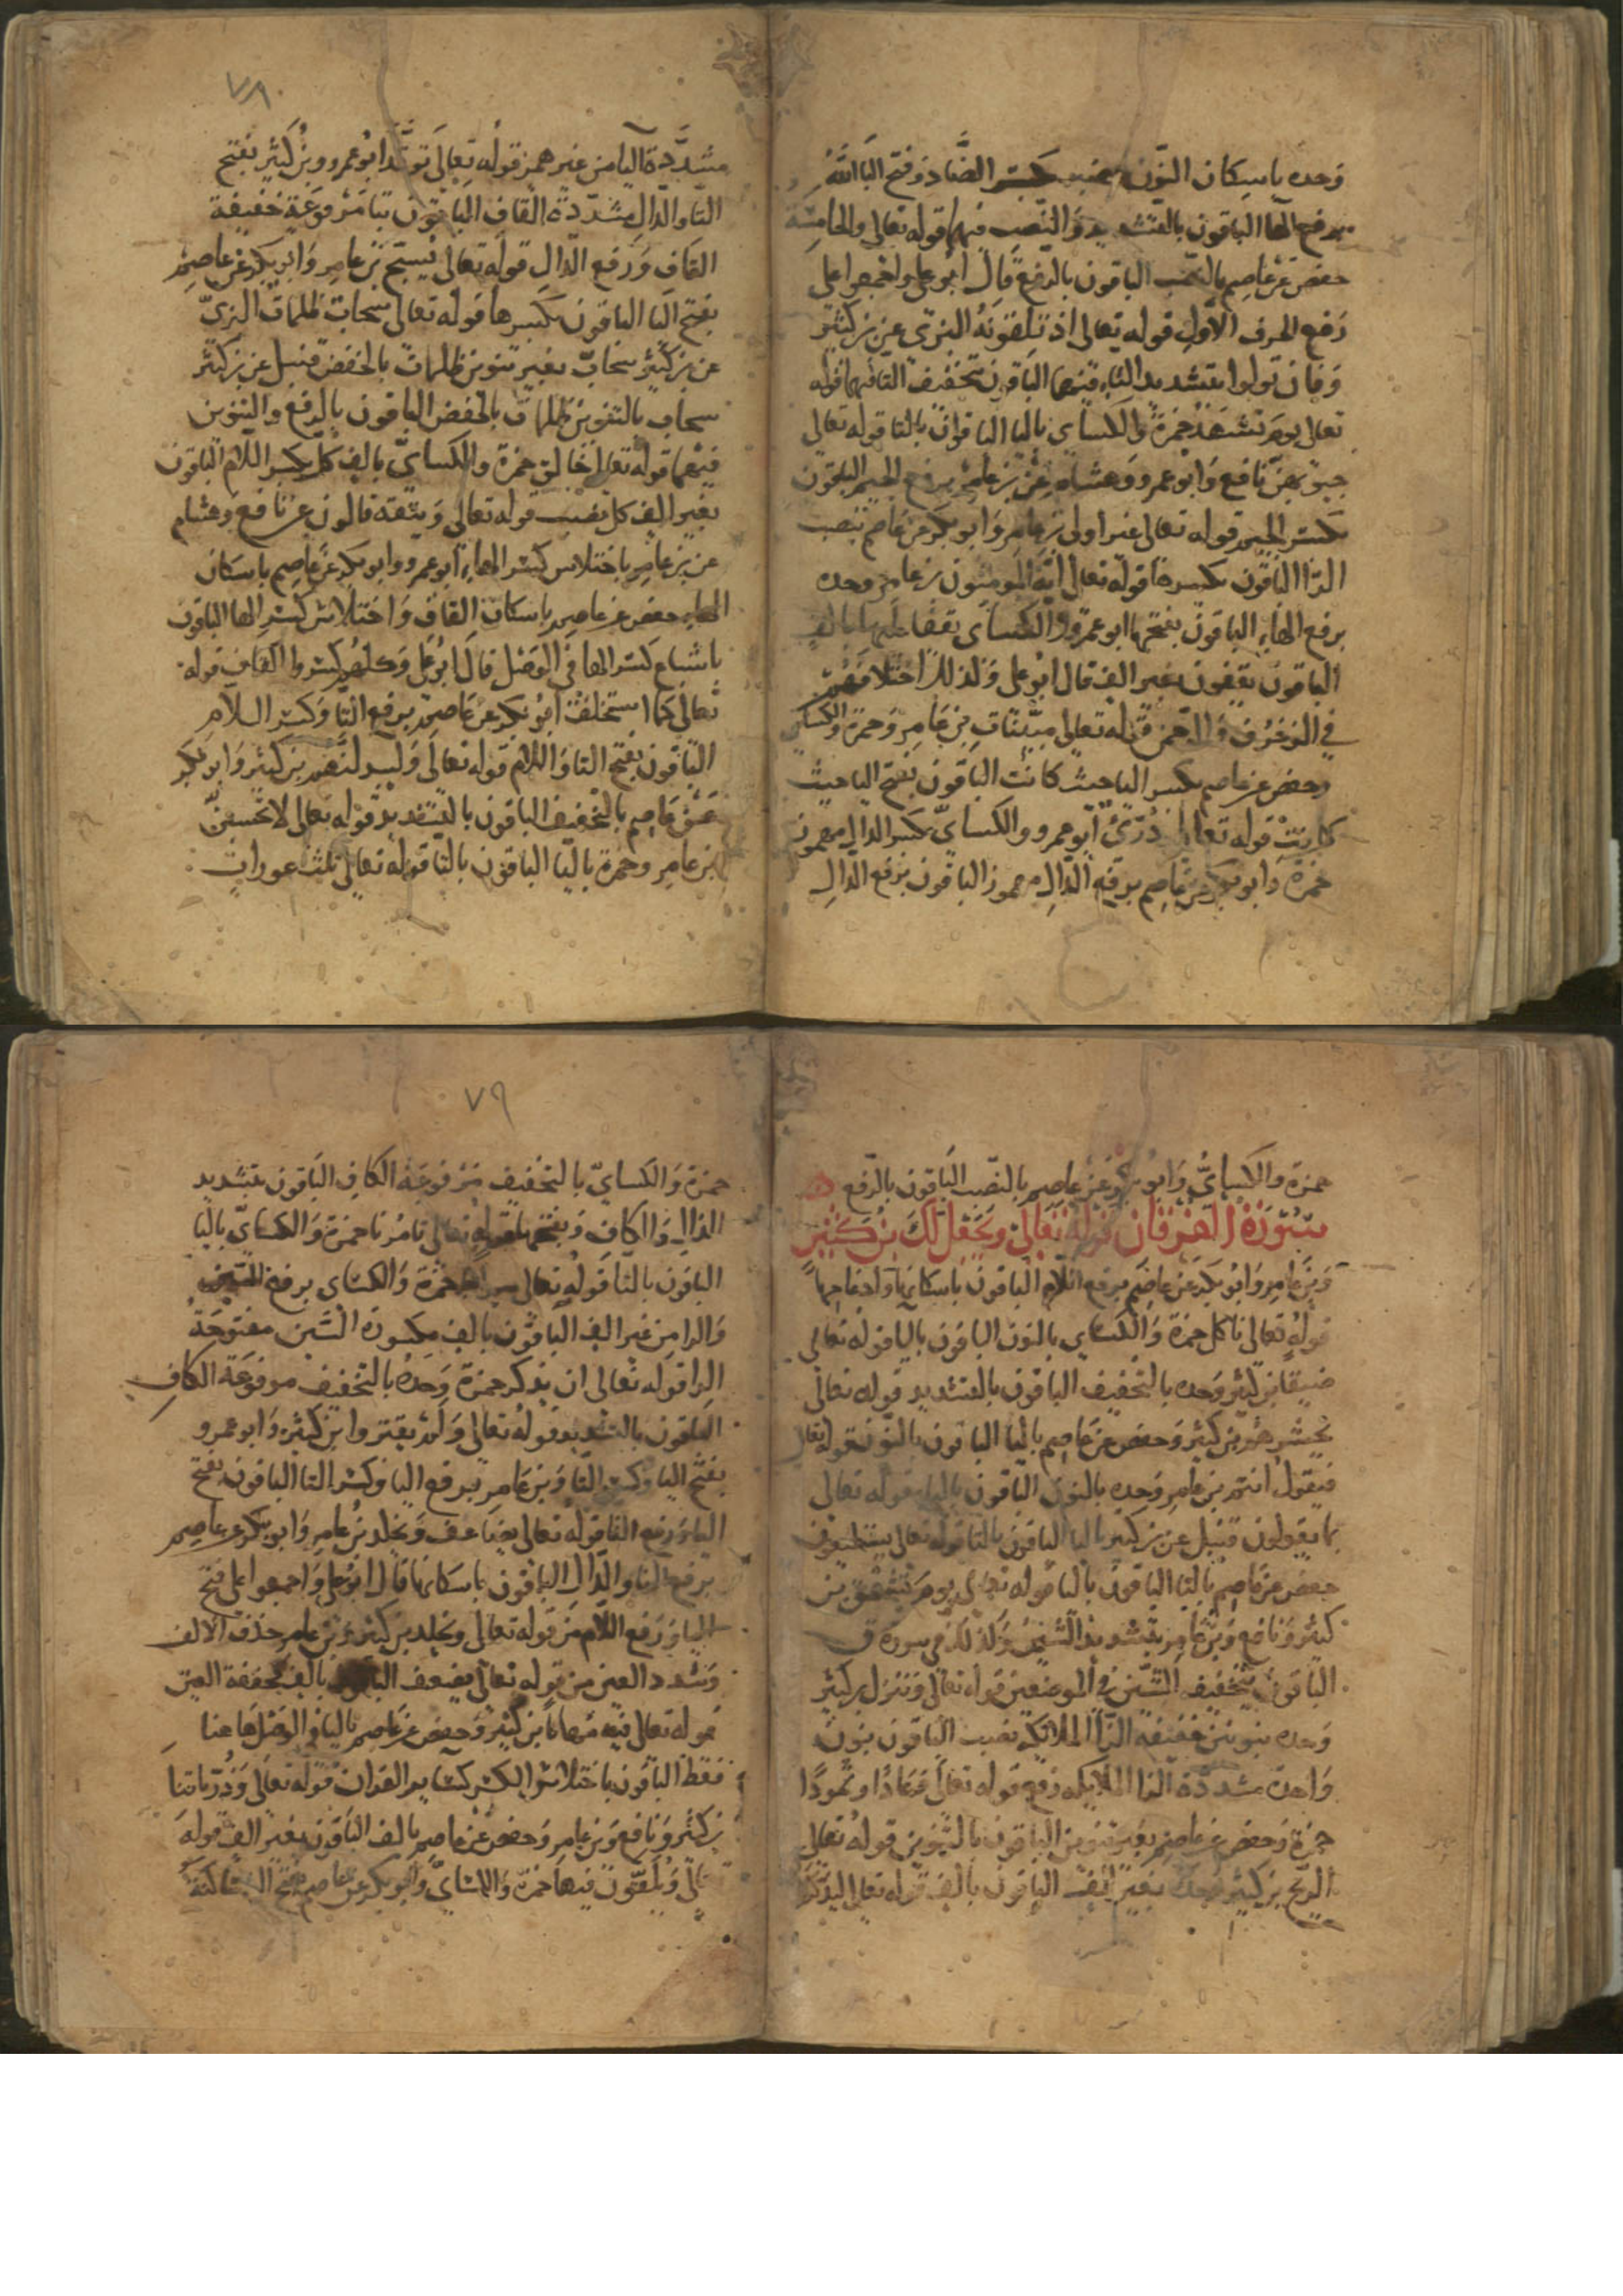 وحده باسكان النون غضب بكسر الضاد وفتح البا الله
برفع الها الباقون بالتشديد والنصب فيهما قوله تعالى والخامسة
حفص عن عاصم بالنصب الباقون بالرفع قال ابو على واجمعوا على
رفع الحرف الاول قوله تعالى اذ تلقونه البزى عن بن كثير
وفان تولوا بتشديد التاء فيهما الباقون بتخفيف التا فيهما قوله
تعالى يوم تشهد حمزة والكساي باليا الباقون بالتا قوله تعالى
جيوبهن نافع وابو عمرو وهشام عن بن عامر برفع الجيم الباقون
بكسر الجيم قوله تعالى غير اولى بن عامر وابو بكر عن عاصم بنصب
الرا الباقون بكسرها قوله تعالى ايه المومنون بن عامر وحده
برفع الهاء الباقون بفتحها ابو عمرو والكساى يقفا عليها بالف
الباقون يقفون بغير الف قال ابو على وكذلك اختلافهم
في الزخرف والرحمن قوله تعالى مبينات بن عامر وحمزة والكساي
وحفص عن عاصم بكسر اليا حيث كانت الباقون بفتح اليا حيث
كانت قوله تعالى درئ ابو عمرو والكساي بكسر الدال مهموز
حمزة وابو بكر عن عاصم برفع الدال مهموز الباقون برفع الدال
٧٨
مشددة اليا من غير همز قوله تعالى توقد ابو عمرو وبن كثير بفتح
التا والدال مشددة القاف الباقون بتا مرفوعة خفيفة
القاف ورفع الدال قوله تعالى يسبح بن عامر وابو بكر عن عاصم
بفتح البا الباقون بكسرها قوله تعالى سحاب ظلمات البزي
عن بن كثير سحاب بغير تنوين ظلمات بالخفض قنبل عن بن كثير
سحاب بالتنوين ظلمات بالخفض الباقون بالرفع والتنوين
فيهما قوله تعالى خالق حمزة والكساي بالف كل بكسر اللام الباقون
بغير الف كل نصب قوله تعالى ويتقه قالون عن نافع وهشام
عن بن عامر باختلاس كسر الهاء ابو عمرو وابو بكر عن عاصم باسكان
الهاء حفص عن عاصم باسكان القاف واختلاس كسر الها الباقون
باشباع كسر الها في الوصل قال ابو على وكلهم كسروا القاف قوله
تعالى كما استخلف ابو بكر عن عاصم برفع التا وكسر اللام
الباقون بفتح التا واللام قوله تعالى وليبدلنهم بن كثير وابو بكر
عن عاصم بالتخفيف الباقون بالتشديد قوله تعالى لا تحسبن
بن عامر وحمزة باليا الباقون بالتا قوله تعالى ثلث عورات
حمزة والكساي وابو بكر عن عاصم بالنصب الباقون بالرفع
سورة الفرقان قوله تعالى ويجعل لك بن كثير
وبن عامر وابو بكر عن عاصم برفع اللام الباقون باسكانها وادغامها
قوله تعالى ناكل حمزة والكساي بالنون الباقون باليا قوله تعالى
ضيقا بن كثير وحده بالتخفيف الباقون بالتشديد قوله تعالى
يحشرهم بن كثير وحفص عن عاصم باليا الباقون بالنون قوله تعالى
فيقول انتم بن عامر وحده بالنون الباقون باليا قوله تعالى
بما يقولون قنبل عن بن كثير باليا الباقون بالتا قوله تعالى يستطيعون
حفص عن عاصم بالتا الباقون باليا قوله تعالى يوم تشقق بن
كثير ونافع وبن عامر بتشديد الشين وكذلك في سورة ق
الباقون بتخفيف الشين في الموضعين قوله تعالى وننزل بن كثير
وحده بنونين خفيفة الزا الملائكة نصب الباقون بنون
واحدة مشددة الزا الملايكه رفع قوله تعالى وعادا وثمودا
حمزة وحفص عن عاصم بغير تنوين الباقون بالتنوين قوله تعالى
الريح بن كثير وحده بغير الف الباقون بالف قوله تعالى ليذكروا
٧٩
حمزة والكساي بالتخفيف مرفوعة الكاف الباقون بتشديد
الذال والكاف وبفتحها قوله تعالى تامرنا حمزة والكساي باليا
الباقون بالتا قوله تعالى سراجا حمزة والكساى برفع السين
والرا من غير الف الباقون بالف مكسورة السين مفتوحة
الرا قوله تعالى ان يذكر حمزة وحده بالتخفيف مرفوعة الكاف
الباقون بالتشديد قوله تعالى ولم يقتروا ابن كثير وابو عمرو
بفتح اليا وكسر التا وبن عامر برفع اليا وكسر التا الباقون بفتح
اليا ورفع التا قوله تعالى يضاعف ويخلد بن عامر وابو بكر عن عاصم
برفع الفا والدال الباقون باسكانها قال ابو على واجمعوا على فتح
اليا ورفع اللام من قوله تعالى ويخلد بن كثير وبن عامر حذف الالف
وشدد العين من قوله تعالى يضعف الباقون بالف مخففة العين
قوله تعالى فيه مهانا بن كثير وحفص عن عاصم بالياء في الوصل هاهنا
فقط الباقون باختلاس الكسر كساير القران قوله تعالى وذرياتنا
بن كثير ونافع وبن عامر وحفص عن عاصم بالف الباقون بغير الف قوله
تعالى ويلقون فيها حمزة والكساي وابو بكر عن عاصم بفتح اليا ساكنة